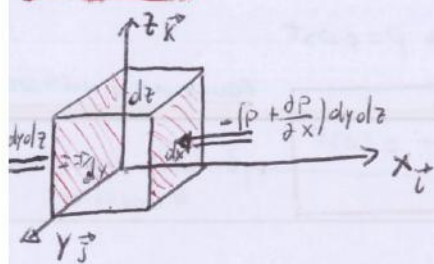 z k⃗
dz
-(P + ∂P/∂x) dy dz
dydz
dx
x i⃗
y j⃗